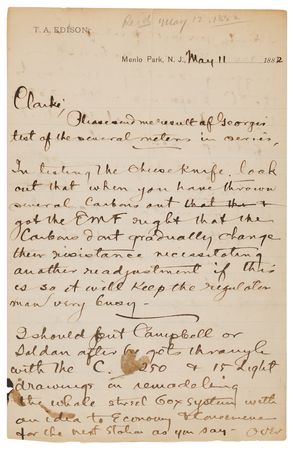 Recd May 12. 1882
T. A. EDISON.
Menlo Park, N. J., May 11 1882
Clarke;
Please send me result of Georges
test of the several meters in series.
In testing the cheese knife. look
out that when you have thrown
several Carbons out that the &
got the EMF right that the
Carbons dont gradually change
their resistance necessitating
another readjustment if this
is so it will keep the regulator
man very busy —
I should put Campbell or
Soldan after he gots through
with the C. 250 & 15 Light
drawings on remodeling
the whole street box system with
an idea to Economy & Convenience
for the next Station as you say — Over